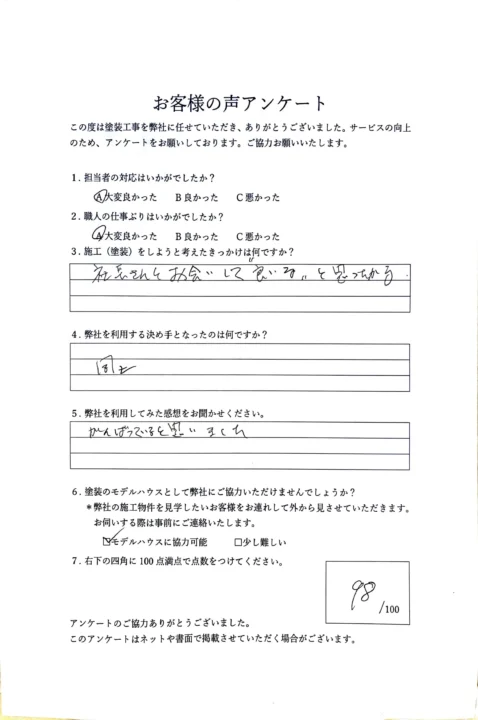 お客様の声アンケート
この度は塗装工事を弊社に任せていただき、ありがとうございました。サービスの向上
のため、アンケートをお願いしております。ご協力お願いいたします。
1．担当者の対応はいかがでしたか？
A大変良かった　B良かった　C悪かった
2．職人の仕事ぶりはいかがでしたか？
A大変良かった　B良かった　C悪かった
3．施工（塗装）をしようと考えたきっかけは何ですか？
社長さんとお会いして良い〃と思ったから.
4．弊社を利用する決め手となったのは何ですか？
同上
5．弊社を利用してみた感想をお聞かせください。
がんばっていると思いました
6．塗装のモデルハウスとして弊社にご協力いただけませんでしょうか？
＊弊社の施工物件を見学したいお客様をお連れして外から見させていただきます。
お伺いする際は事前にご連絡いたします。
☑モデルハウスに協力可能　□少し難しい
7．右下の四角に100点満点で点数をつけてください。
98 /100
アンケートのご協力ありがとうございました。
このアンケートはネットや書面で掲載させていただく場合がございます。